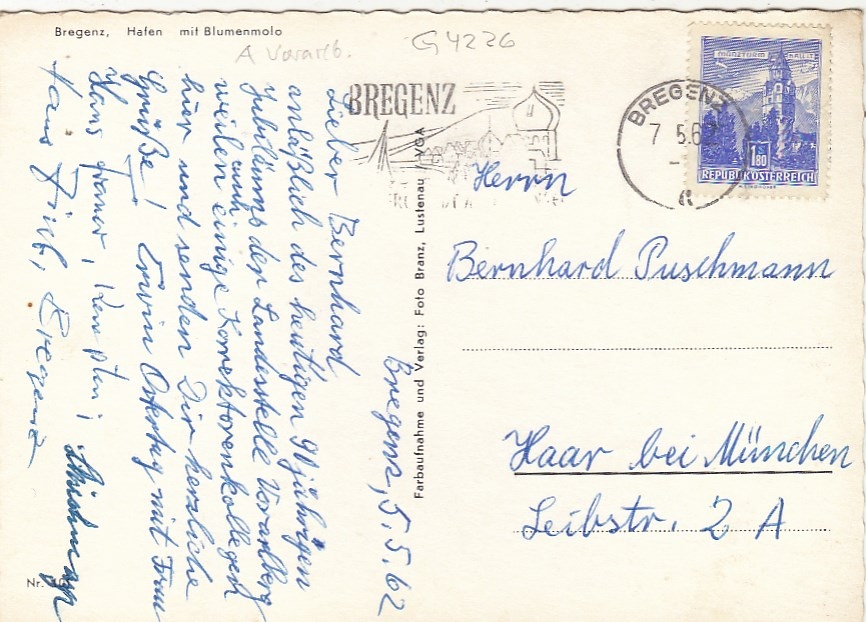 Bregenz, Hafen mit Blumenmolo
A Vorarlb.
G 4226
BREGENZ
BREGENZ
7 5.62
a
MÜNZTURM HALL i.T.
1.80
REPUBLIK ÖSTERREICH
Bregenz, 5.5.62
Lieber Bernhard
anläßlich des heutigen 90 jährigen
Jubiläums der Landesstelle Vorarlberg
weilen auch einige Korrektorenkollegen
hier und senden Dir herzliche
Grüße! Erwin Ostertag mit Frau
Hans Kempten;
Hans Bregenz
Farbaufnahme und Verlag: Foto Branz, Lustenau / VGA
Herrn
Bernhard Puschmann
Haar bei München
Leibstr. 2 A
Nr.